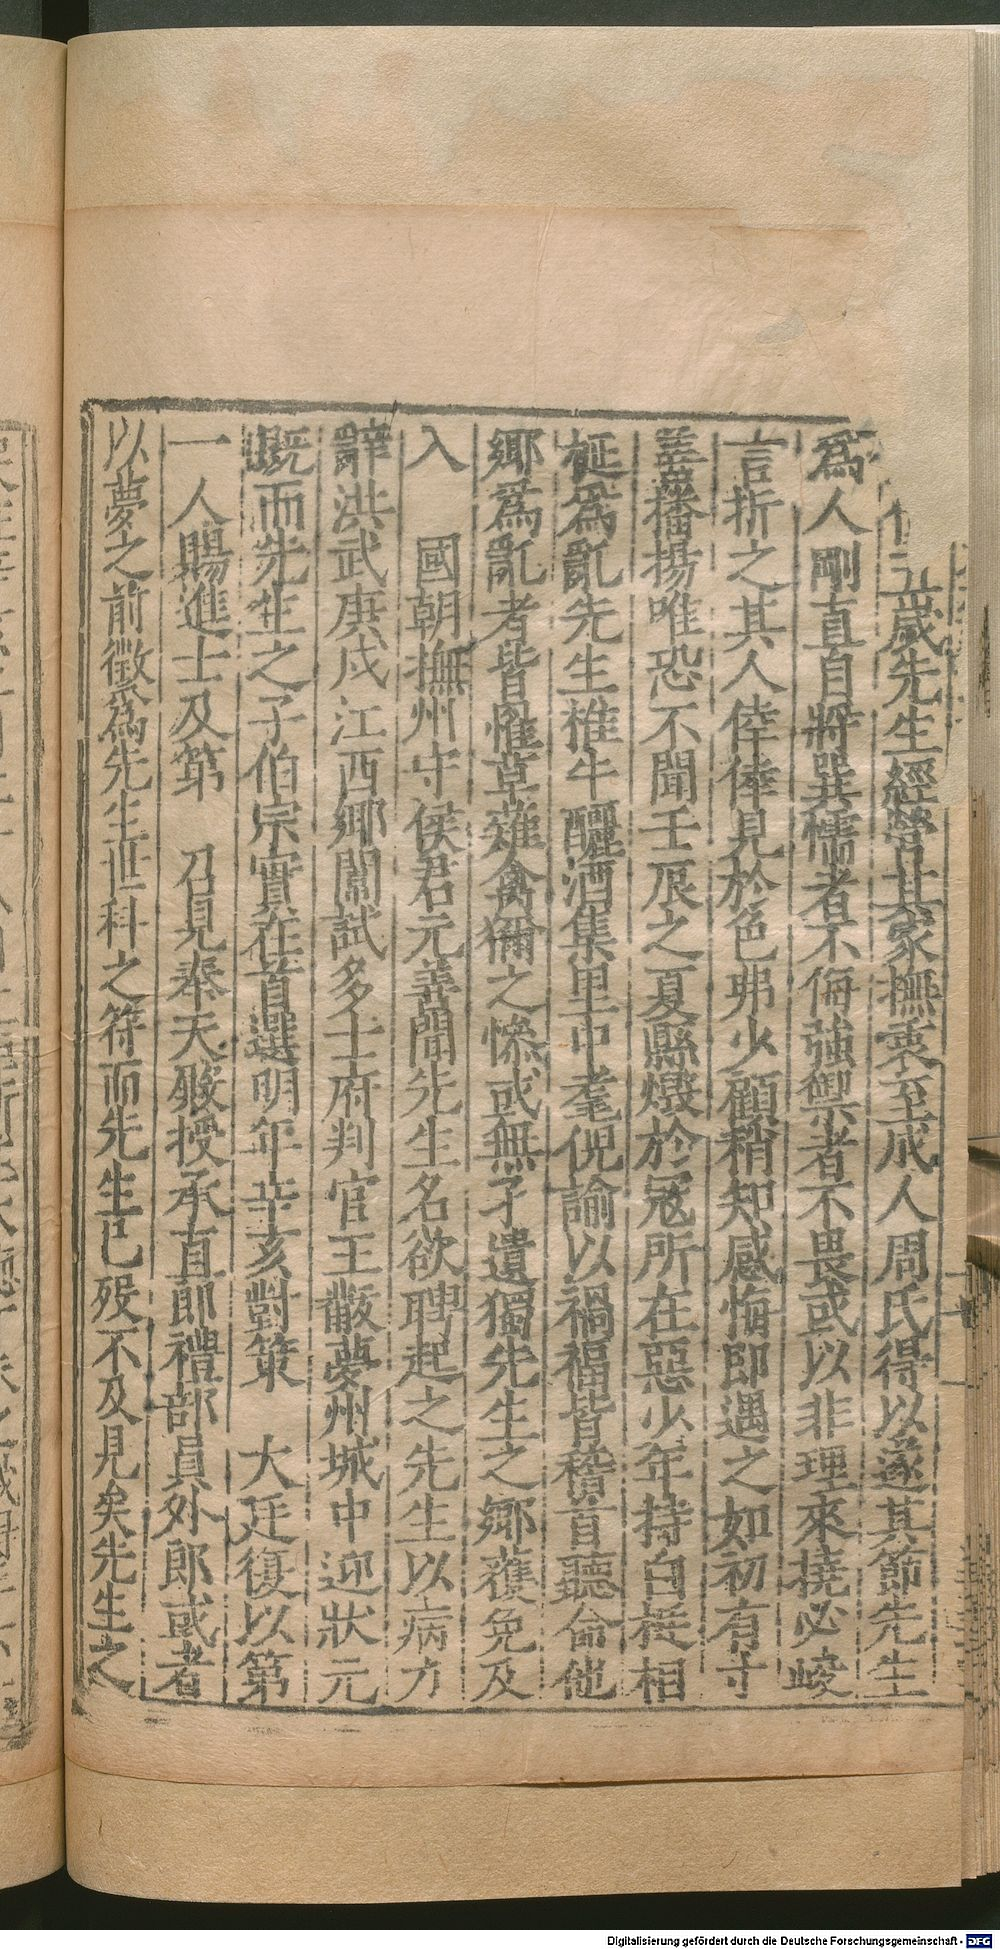 五歲先生經營其家撫衷至成人周氏得以遂其節先生
為人剛直自將巽懦者不侮強禦者不畏或以非理來撓必峻
言折之其人倖倖見於色弗少顧稍知感悔即遇之如初有寸
善播揚唯恐不聞壬辰之夏縣燬於冦所在惡少年持白梃相
梴為亂先生椎牛釃酒集里中耄倪諭以禍福皆稽首聽命他
鄉為亂者皆罹草薙禽獮之慘或無孑遺獨先生之鄉獲免及
入　國朝撫州守侯君元善聞先生名欲聘起之先生以病力
辭洪武庚戌江西鄉闈試多士府判官王黻夢州城中迎狀元
既而先生之子伯宗實在首選明年辛亥對策　大廷復以第
一人賜進士及第　召見奉天殿授承直郎禮部員外郎或者
以夢之前徵為先生世科之符而先生已歿不及見矣先生之
Digitalisierung gefördert durch die Deutsche Forschungsgemeinschaft - DFG